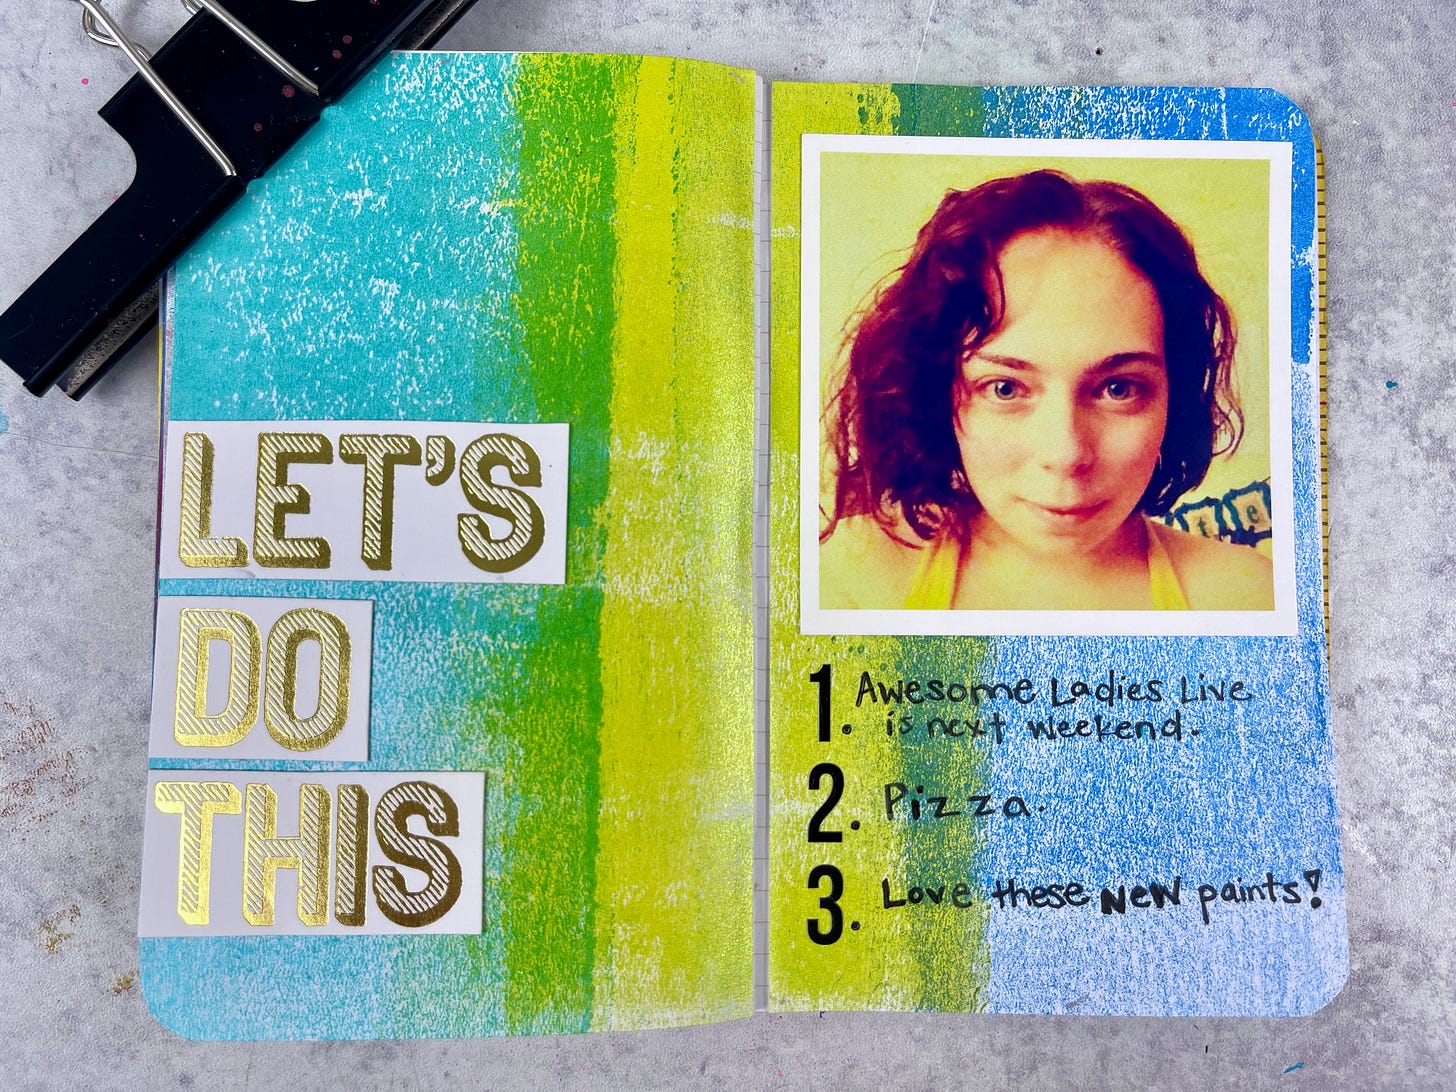 LET'S
DO
THIS
1. Awesome Ladies Live
is next weekend.
2. Pizza.
3. Love these NEW paints!